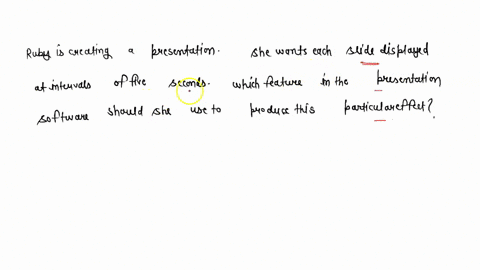 Ruby is creating a presentation. she wants each slide displayed
at intervals of five seconds. which feature in the presentation
software should she use to produce this particular effect?